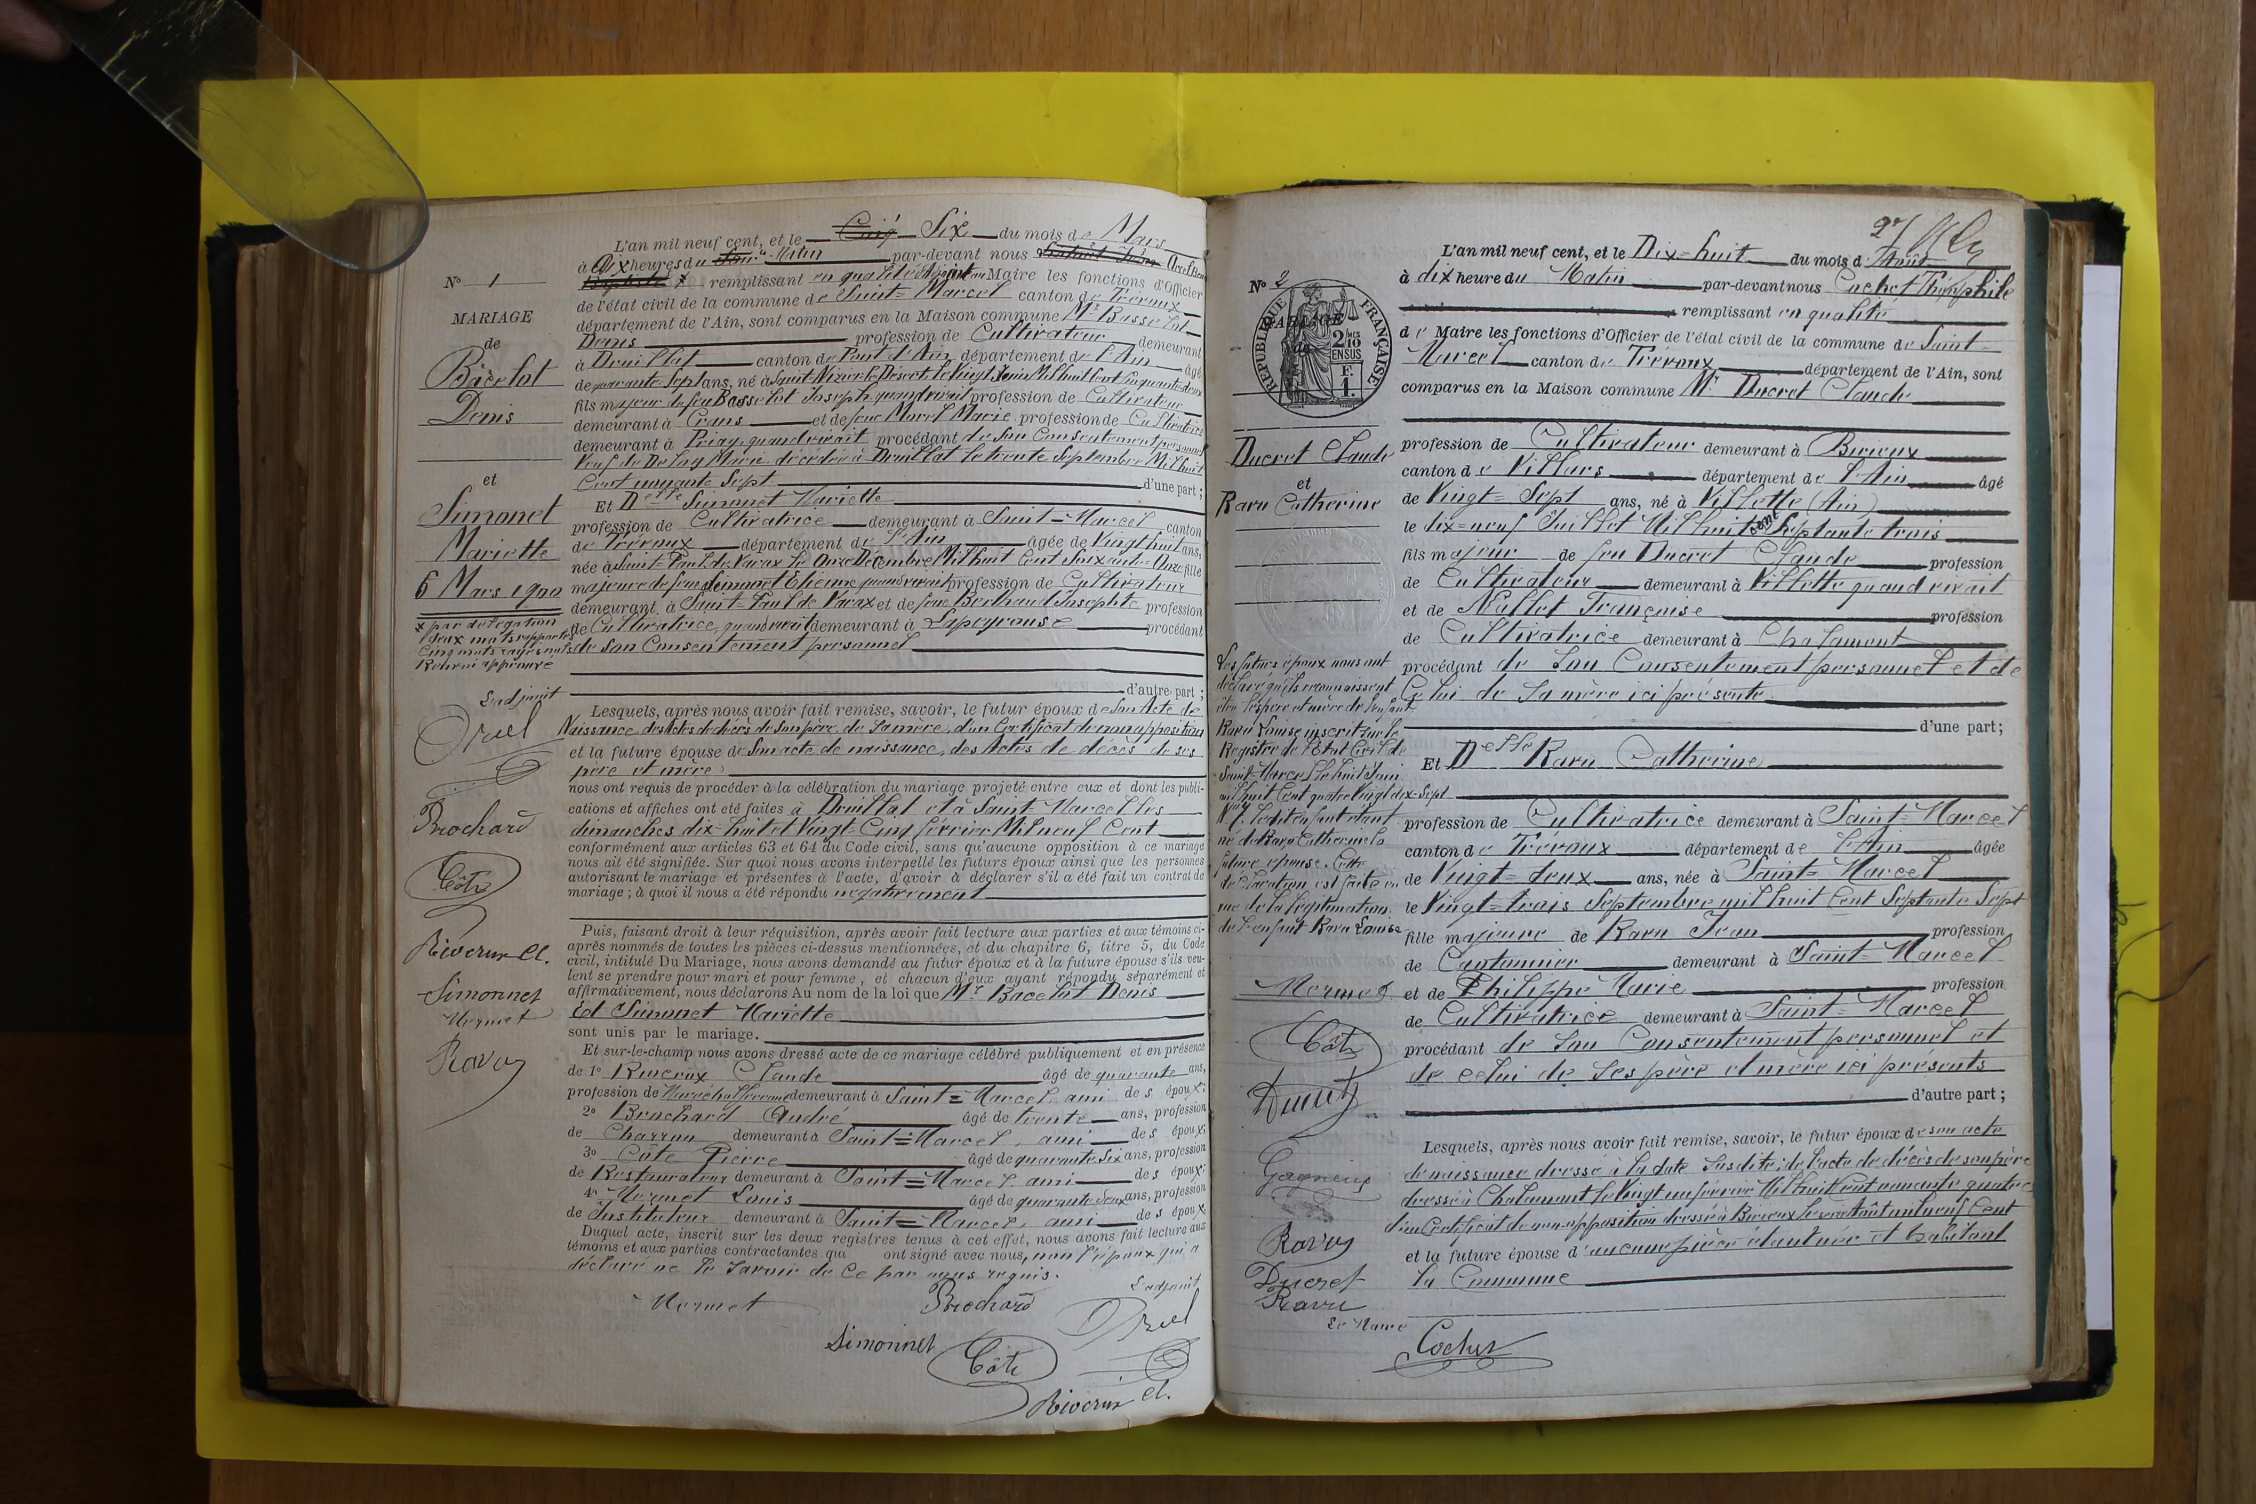 N° 1
MARIAGE
de
Bacelot
Denis
et
Simonet
Mariette
6 Mars 1900
x par délégation
deux mots rapportés
cinq mots rayés nuls
L'adjoint
Oruel
Brochard
Côte
Riverux Cl.
Simonnet
Mermet
Ravoy
L'an mil neuf cent, et le Cinq Six du mois de Mars
à Dix heures du Matin par-devant nous
x remplissant en qualité d'Adjoint au Maire les fonctions d'Officier
de l'état civil de la commune de Saint-Marcel canton de Trévoux
département de l'Ain, sont comparus en la Maison commune Mr Bacelot
Denis profession de Cultivateur demeurant
à Druillat canton de Pont d'Ain département de l'Ain âgé
de quarante sept ans, né à Saint-Nizier le Désert le Vingt Juin Mil huit Cent Cinquante deux
fils majeur de feu Bacelot Joseph quand vivait profession de Cultivateur
demeurant à Crans et de feue Morel Marie profession de Cultivatrice
demeurant à Priay quand vivait procédant de Son Consentement personnel
Veuf de Delay Marie décédée à Druillat le trente Septembre Mil huit
Cent nonante Sept d'une part ;
Et Delle Simonet Mariette
profession de Cultivatrice demeurant à Saint-Marcel canton
de Trévoux département de l'Ain âgée de Vingt huit ans,
née à Saint-Paul de Varax le Onze Décembre Mil huit Cent Soixante-Onze fille
majeure de feu Simonet Etienne quand vivait profession de Cultivateur
demeurant à Saint-Paul de Varax et de feue Berthaud Josephte profession
de Cultivatrice, quand vivait demeurant à Lapeyrouse procédant
de Son Consentement personnel
d'autre part ;
Lesquels, après nous avoir fait remise, savoir, le futur époux de Son Acte de
Naissance des Actes de décès de Son père, de Sa mère, d'un Certificat de non opposition
et la future épouse de Son acte de naissance, des Actes de décès de ses
père et mère
nous ont requis de procéder à la célébration du mariage projeté entre eux et dont les publi-
cations et affiches ont été faites à Druillat et à Saint-Marcel les
dimanches dix-huit et Vingt-Cinq février Mil neuf Cent
conformément aux articles 63 et 64 du Code civil, sans qu'aucune opposition à ce mariage
nous ait été signifiée. Sur quoi nous avons interpellé les futurs époux ainsi que les personnes
autorisant le mariage et présentes à l'acte, d'avoir à déclarer s'il a été fait un contrat de
mariage ; à quoi il nous a été répondu négativement
Puis, faisant droit à leur réquisition, après avoir fait lecture aux parties et aux témoins ci-
après nommés de toutes les pièces ci-dessus mentionnées, et du chapitre 6, titre 5, du Code
civil, intitulé Du Mariage, nous avons demandé au futur époux et à la future épouse s'ils veu-
lent se prendre pour mari et pour femme, et chacun d'eux ayant répondu séparément et
affirmativement, nous déclarons Au nom de la loi que Mr Bacelot Denis
Et Simonet Mariette
sont unis par le mariage.
Et sur-le-champ nous avons dressé acte de ce mariage célébré publiquement et en présence
de 1° Riverux Claude âgé de quarante ans,
profession de Maréchal ferrant demeurant à Saint-Marcel ami des époux ;
2° Brochard André âgé de trente ans, profession
de Charron demeurant à Saint-Marcel, ami des époux ;
3° Côte Pierre âgé de quarante Six ans, profession
de Restaurateur demeurant à Saint-Marcel, ami des époux ;
4° Mermet Louis âgé de quarante deux ans, profession
de Instituteur demeurant à Saint-Marcel, ami des époux.
Duquel acte, inscrit sur les deux registres tenus à cet effet, nous avons fait lecture aux
témoins et aux parties contractantes qui ont signé avec nous, non l'époux qui a
déclaré ne le savoir de Ce par nous requis.
L'adjoint
Mermet Brochard Oruel
Simonnet Côte
Riverux Cl.
2e
N° 2
MARIAGE
de
RÉPUBLIQUE FRANÇAISE
2/10 EN SUS
F. 1.
Ducret Claude
et
Ravu Catherine
Les futurs époux nous ont
déclaré qu'ils reconnaissent
être les père et mère de l'enfant
Ravu Louise inscrit sur le
Registre de l'Etat Civil de
Saint-Marcel le huit Juin
mil huit Cent quatre Vingt dix-Sept
Ledit enfant étant
né de Ravu Catherine la
future épouse. Cette
déclaration est faite en
vue de la légitimation
de l'enfant Ravu Louise
Mermet
Côte
Ducret
Gagneux
Ravoy
Ducret
Ravu
Le Maire
Cochet
L'an mil neuf cent, et le Dix-huit du mois d'Août
à dix heure du Matin par-devant nous Cochet Théophile
remplissant en qualité
de Maire les fonctions d'Officier de l'état civil de la commune de Saint-
Marcel canton de Trévoux département de l'Ain, sont
comparus en la Maison commune Mr Ducret Claude
profession de Cultivateur demeurant à Birieux
canton de Villars département de l'Ain âgé
de Vingt-Sept ans, né à Villette (Ain)
le dix-neuf Juillet Mil huit Cent Septante trois
fils majeur de feu Ducret Claude profession
de Cultivateur demeurant à Villette quand vivait
et de Nallet Françoise profession
de Cultivatrice demeurant à Chalamont
procédant de Son Consentement personnel et de
Celui de Sa mère ici présente
d'une part ;
Et Delle Ravu Catherine
profession de Cultivatrice demeurant à Saint-Marcel
canton de Trévoux département de l'Ain âgée
de Vingt-deux ans, née à Saint-Marcel
le Vingt-trois Septembre mil huit Cent Septante Sept
fille majeure de Ravu Jean profession
de Cantonnier demeurant à Saint-Marcel
et de Philippe Marie profession
de Cultivatrice demeurant à Saint-Marcel
procédant de Son Consentement personnel et
de celui de Ses père et mère ici présents
d'autre part ;
Lesquels, après nous avoir fait remise, savoir, le futur époux de son acte
de naissance dressé à la date Susdite ; de l'acte de décès de son père
dressé à Chalamont le Vingt un février Mil huit cent nonante quatre
d'un Certificat de non-opposition dressé à Birieux le sept Août mil neuf Cent
et la future épouse d'aucune pièce étant née et habitant
la Commune